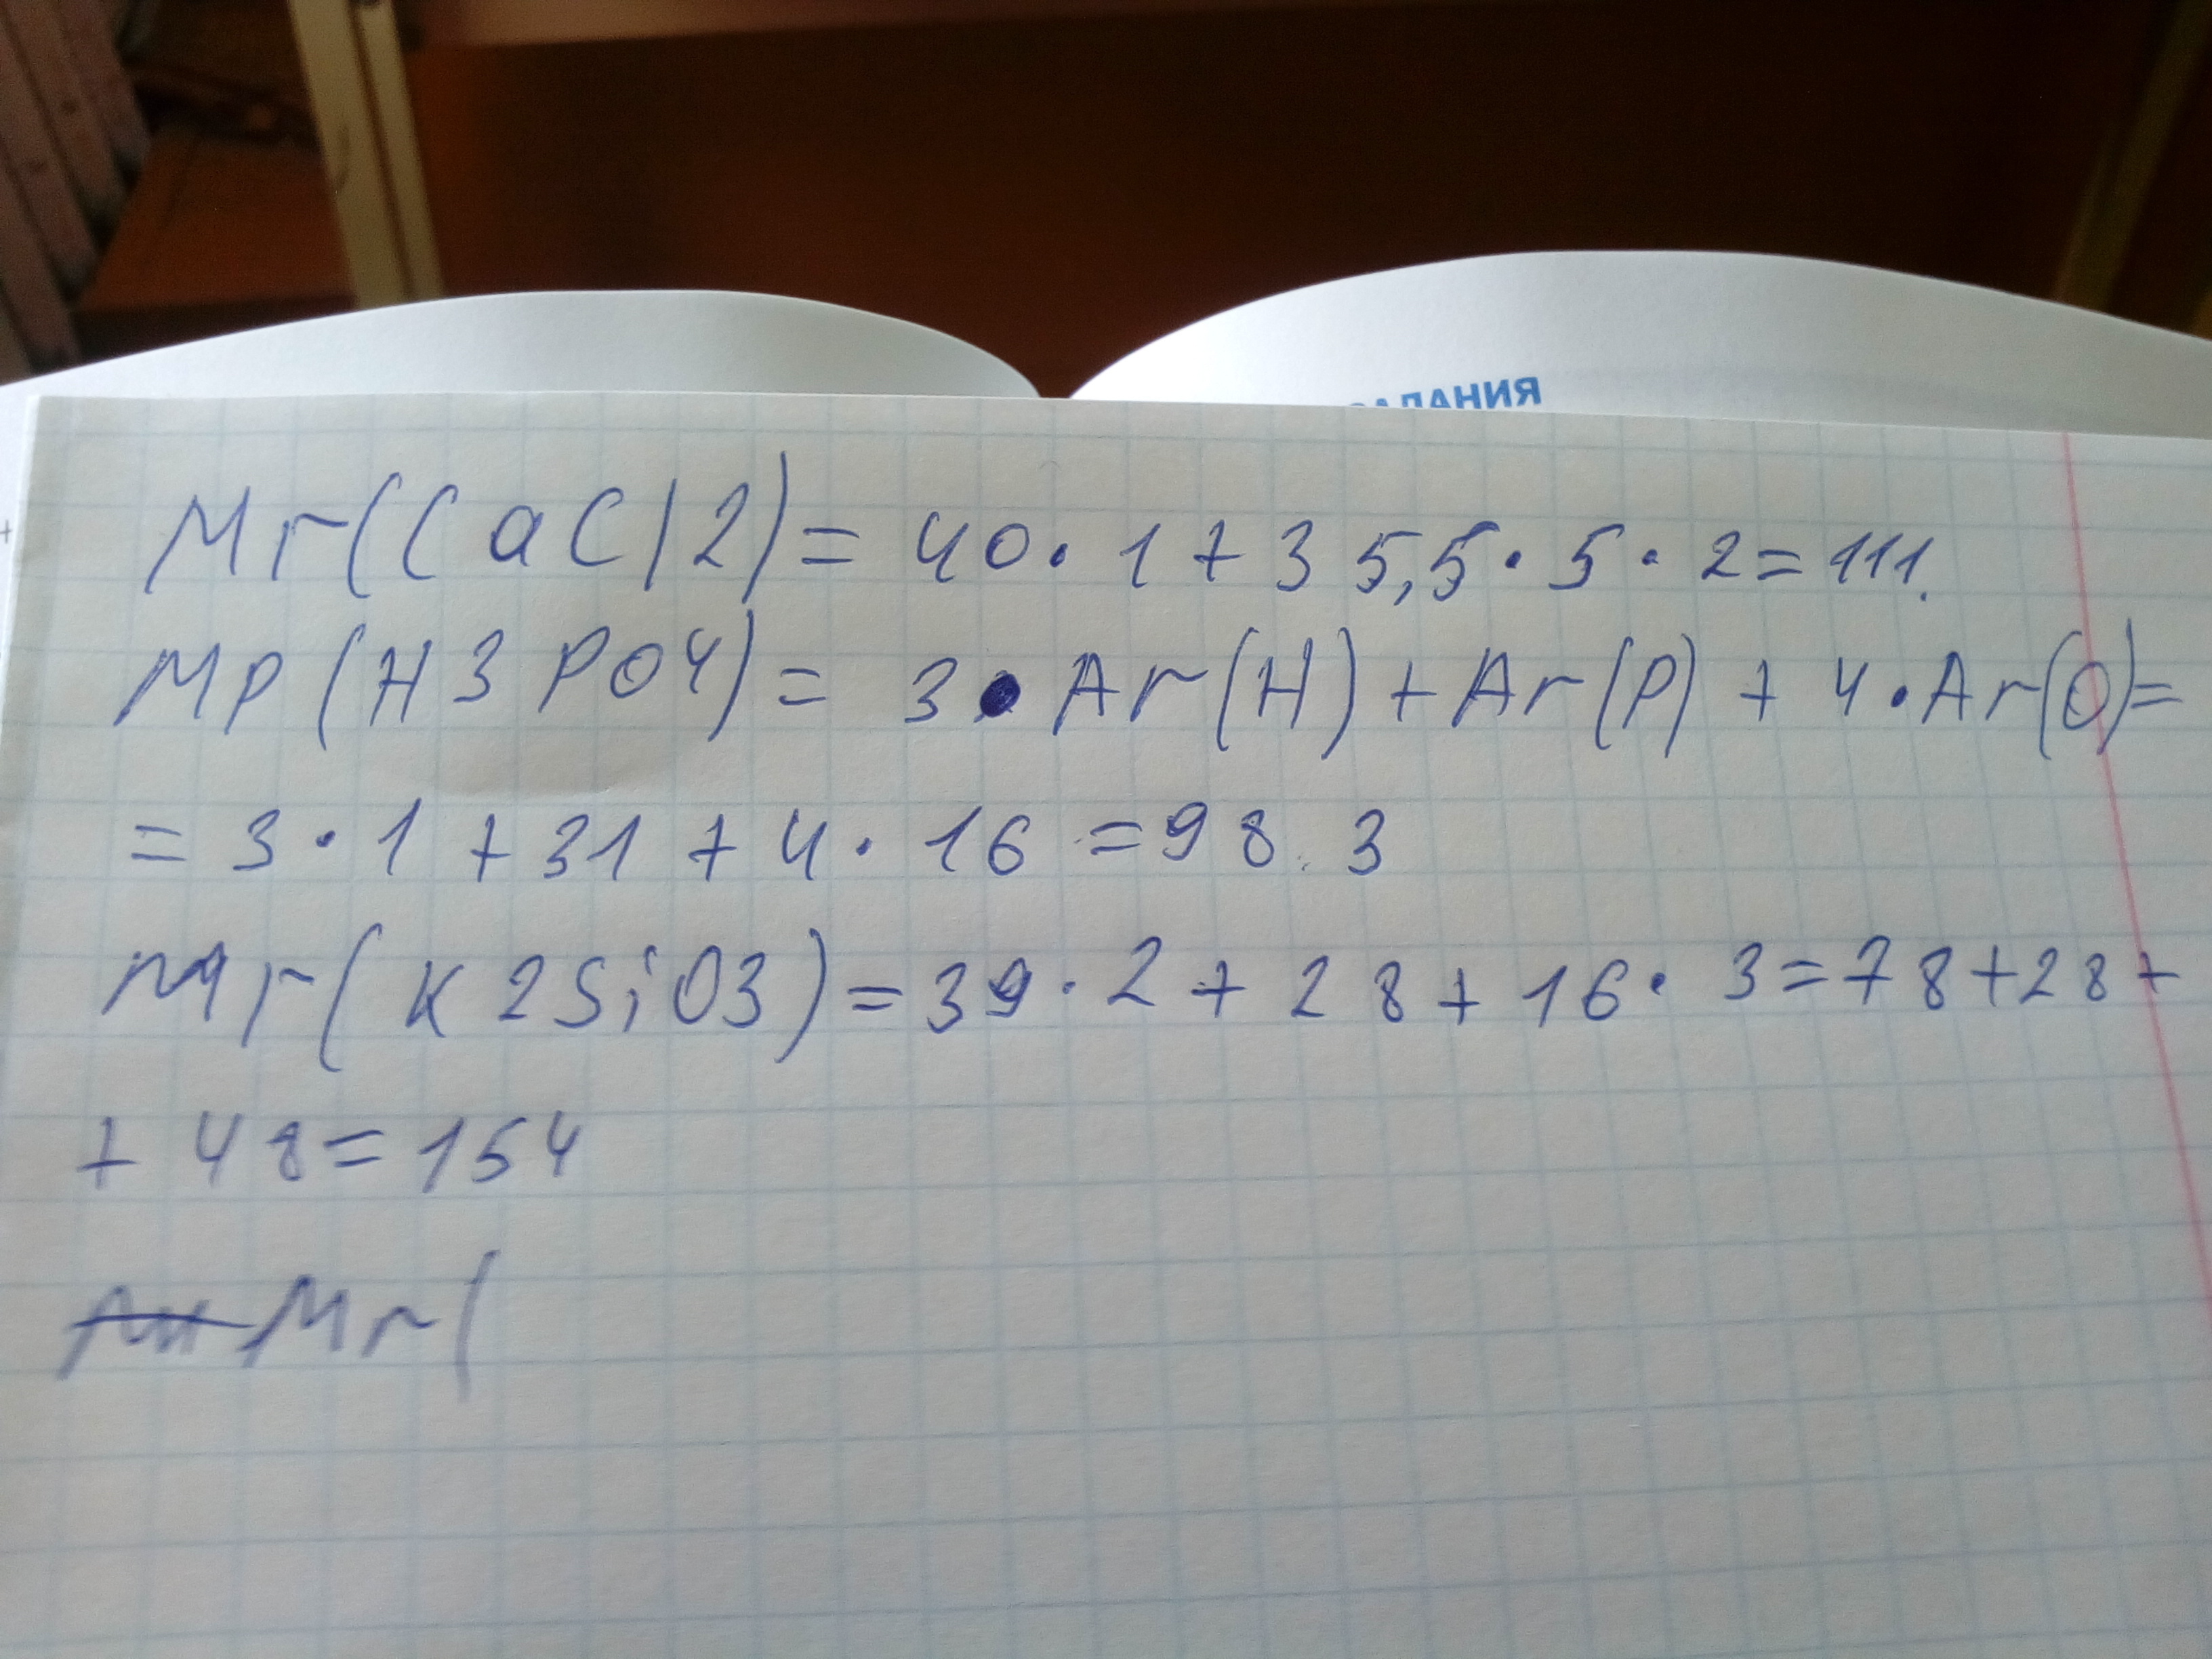 ЗАДАНИЯ
Mr(CaCl2)= 40·1+35,5·5·2=111.
Mp(H3PO4)= 3·Ar(H)+Ar(P)+4·Ar(O)=
=3·1+31+4·16=98.3
Mr(K2SiO3)=39·2+28+16·3=78+28+
+48=154
Mr(